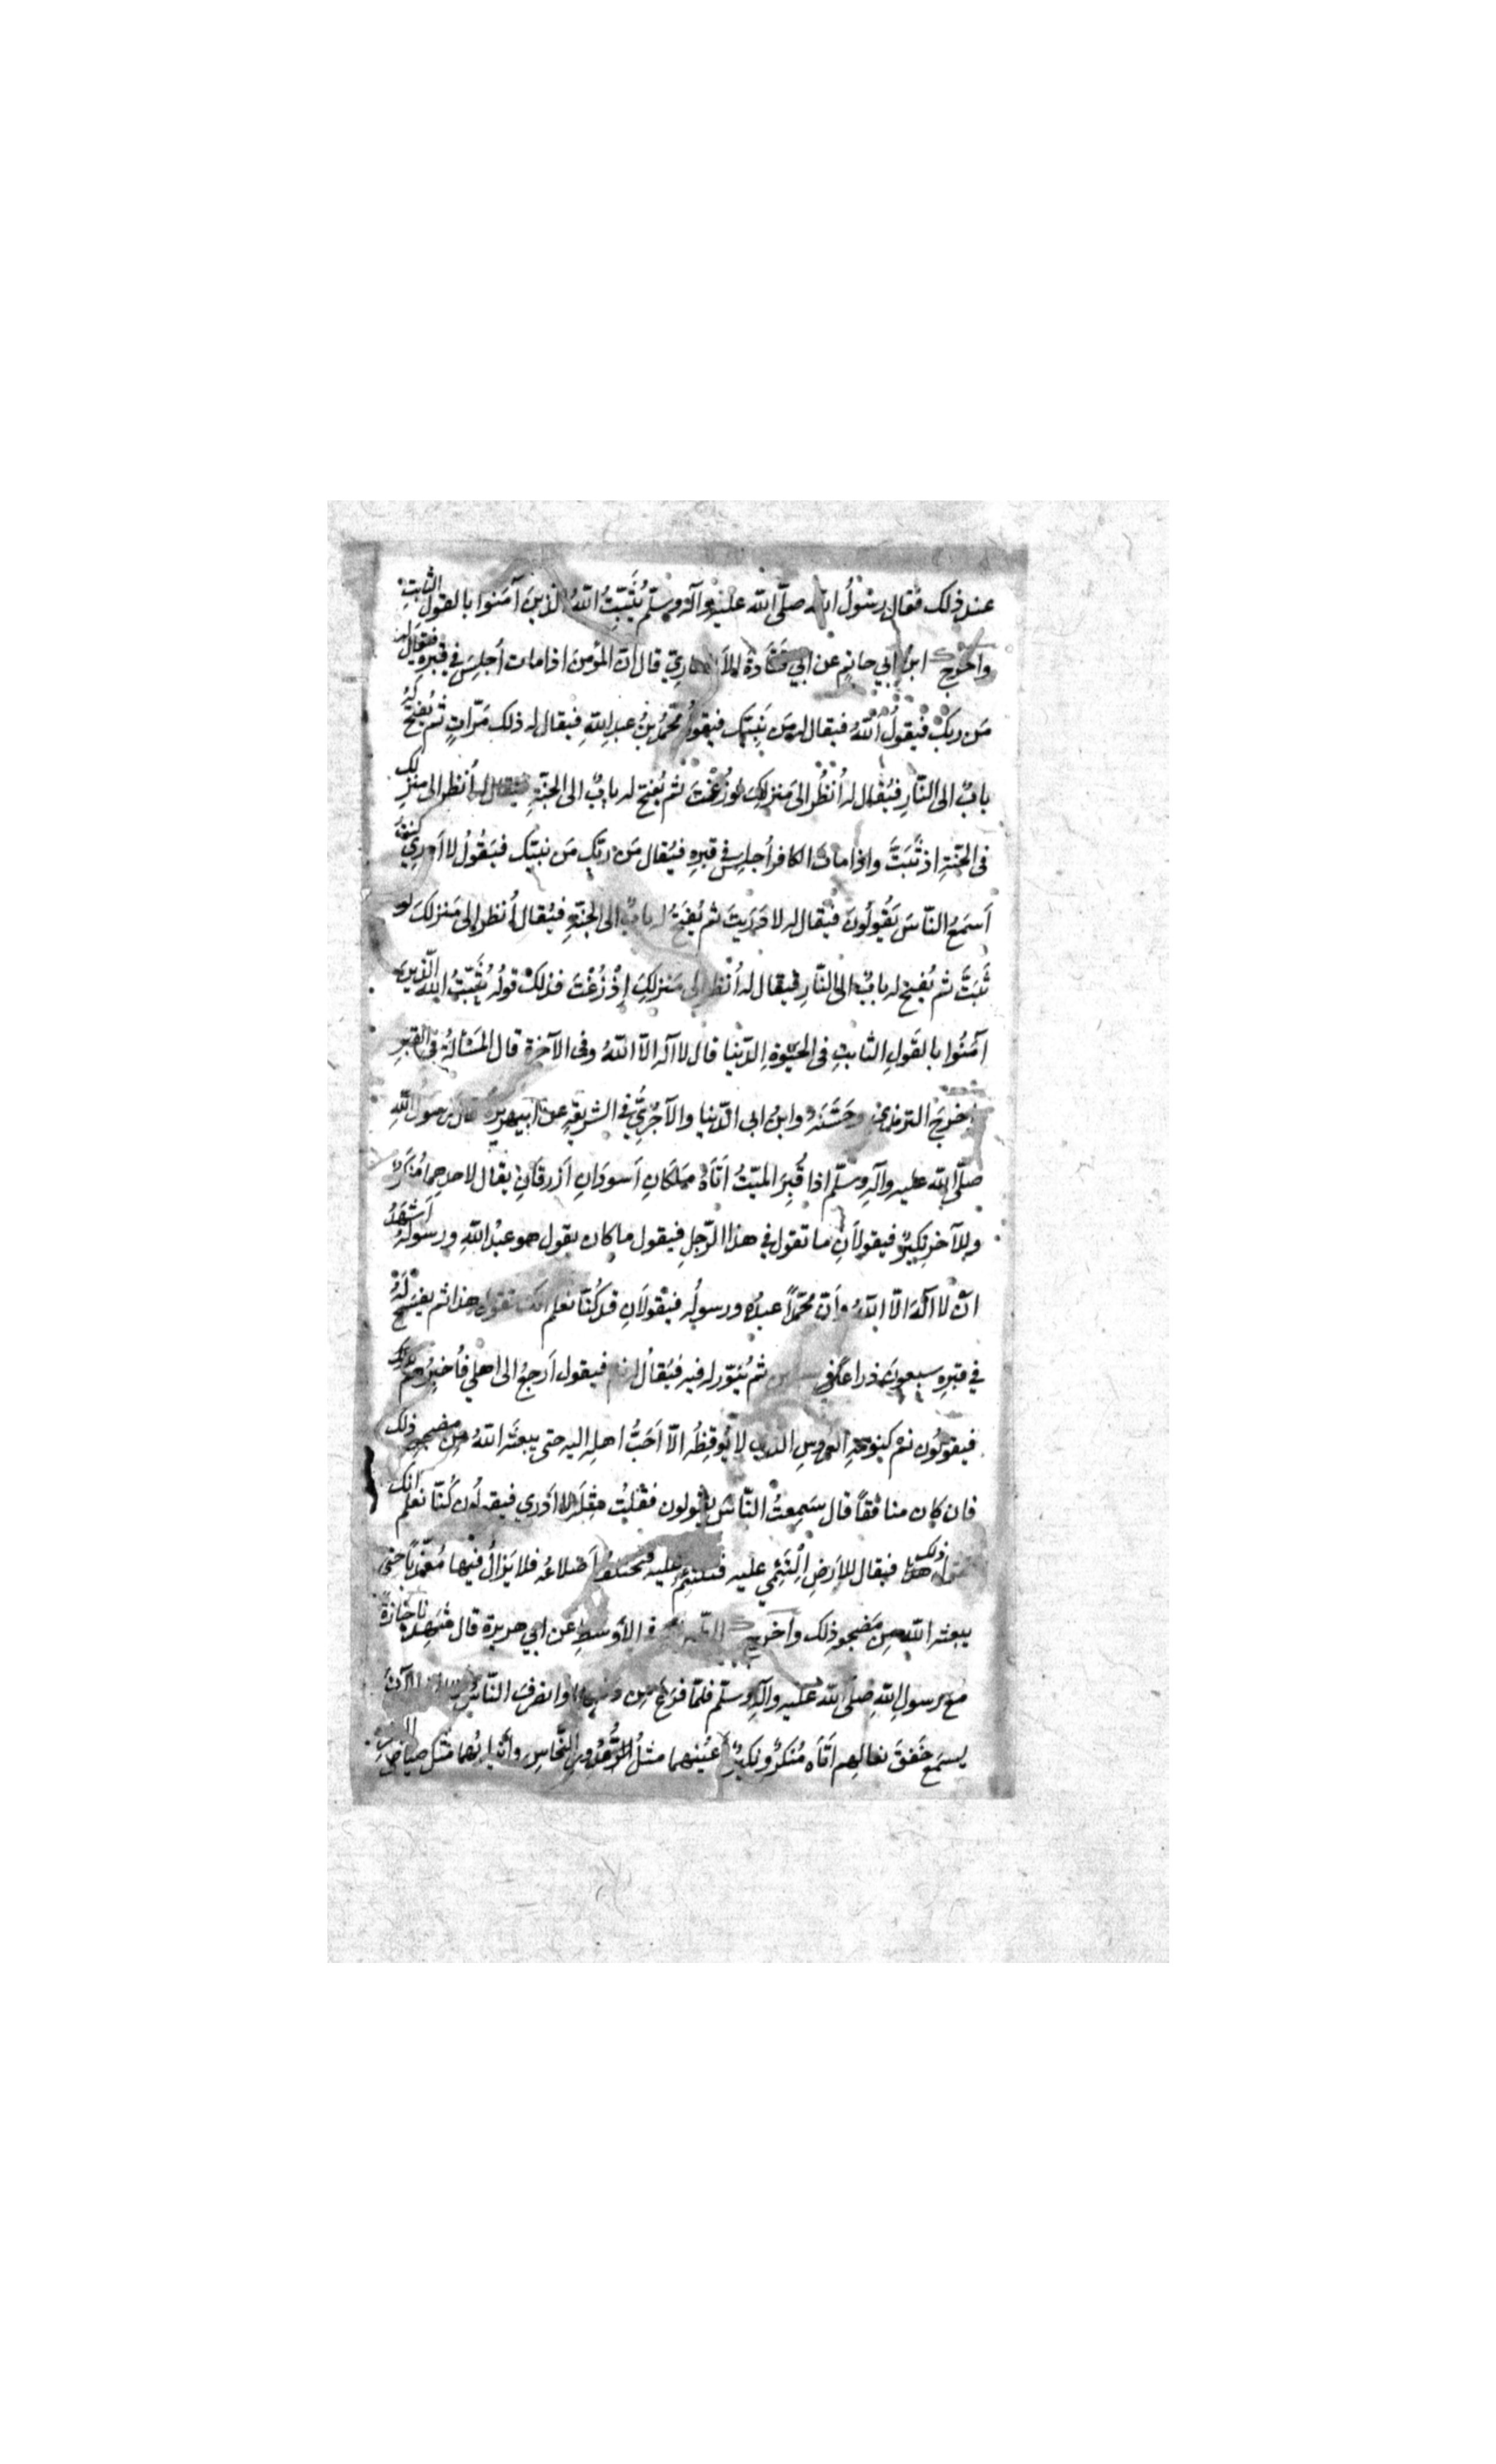 عند ذلك فقال رسُولُ الله صلّى الله عليه وآله وسلّم يُثَبِّتُ اللهُ الذينَ آمَنوا بالقول الثابتِ
وأخرج ابنُ ابي حاتمٍ عن ابي قَتَادةَ الأنصاريّ قال انّ المؤمنَ اذا مات أُجلِسَ في قبرِه فيقال له
مَن ربّك فيقولُ اللهُ فيقال له مَن نَبِيّك فيقول محمّدُ بنُ عبدِ اللهِ فيقال له ذلك مَرّاتٍ ثم يُفتح له
بابٌ الى النّارِ فيُقال له أُنظُر الى مَنزلِكَ لو زُغْتَ ثم يُفتح له بابٌ الى الجنّةِ فيقال له أُنظر الى منزلِك
في الجنّةِ اذ ثَبَتَّ واذا مات الكافر أُجلِسَ في قبرِهِ فيُقال مَن ربّك مَن نبيّك فيَقُولُ لا أدري كنتُ
أَسمَعُ النّاسَ يَقُولُونَ فيُقال له لا دَرَيتَ ثم يُفتَحُ له بابٌ الى الجنّةِ فيُقال أُنظر إلى مَنزلكَ لو
ثَبَتَّ ثم يُفتح له بابٌ الى النّارِ فيقال له أُنظر الى مَنزلِكِ إذْ زُغْتَ فذلك قولُه يُثَبِّتُ الله الّذينَ
آمَنُوا بالقَولِ الثابتِ في الحيٰوةِ الدّنيا قال لا اله الّا اللهُ وفي الآخرة قال المَسْألةُ في القبرِ
أخرجَ الترمذي وحَسَّنَهُ وابنُ ابي الدّنيا والآجُرِيُّ في الشريعةِ عن ابي هريرة قال رسولُ اللهِ
صلّى الله عليه وآلهِ وسلّم اذا قُبِرَ الميّتُ أتَاهُ مَلَكَانِ أسودَانِ أزرقَانِ يقال لاحدِهِما مُنكَرٌ
وللآخرِ نكيرٌ فيقولَانِ ما تقول في هذا الرّجلِ فيقول ما كان يقول هو عبْدُ اللهِ ورسولُه أشهَدُ
انّ لا اله الّا اللهُ وأنّ محمّداً عبدُه ورسولُه فيقولَانِ قد كُنّا نعلم انّك تقول هذا ثم يفسَح لَهُ
في قبرِه سبعونَ ذراعًا في سبعين ثم يُنَوّر له فيه فيُقالُ له نم فيقول أرجعُ الى اهلي فأُخبِرُهم بذلك
فيقولُون نم كنومَةِ العروسِ الذي لا يُوقِظُه الّا أحَبُّ اهلِه اليه حتى يبعثَه اللهُ مِن مضجعِه ذلك
فان كان منافقاً قال سَمِعتُ النّاسَ يقولون فقُلتُ مِثلَه لا أدري فيقولُون كُنّا نعلم انّك
تقول ذلك فيقال للأرضِ الْتَئِمي عليه فتلتئم عليه فتختلفُ أضلاعُه فلا يَزالُ فيها مُعَذّبًا حتى
يبعثه الله مِن مَضجعِه ذلك وأخرج الطبراني في الأوسطِ عن ابي هريرة قال شهدنا جنازةً
مع رسولِ اللهِ صلّى الله عليه وآلهِ وسلّم فلمّا فرَغَ مِن دفنها وانصرفَ النّاسُ قال الآنَ
يسمَع خَفقَ نعالِهِم أتَاه مُنكَرٌ ونكيرٌ أعيُنهما مثلُ قُدُورِ النُّحاسِ وأنيابُهما مثل صياصي